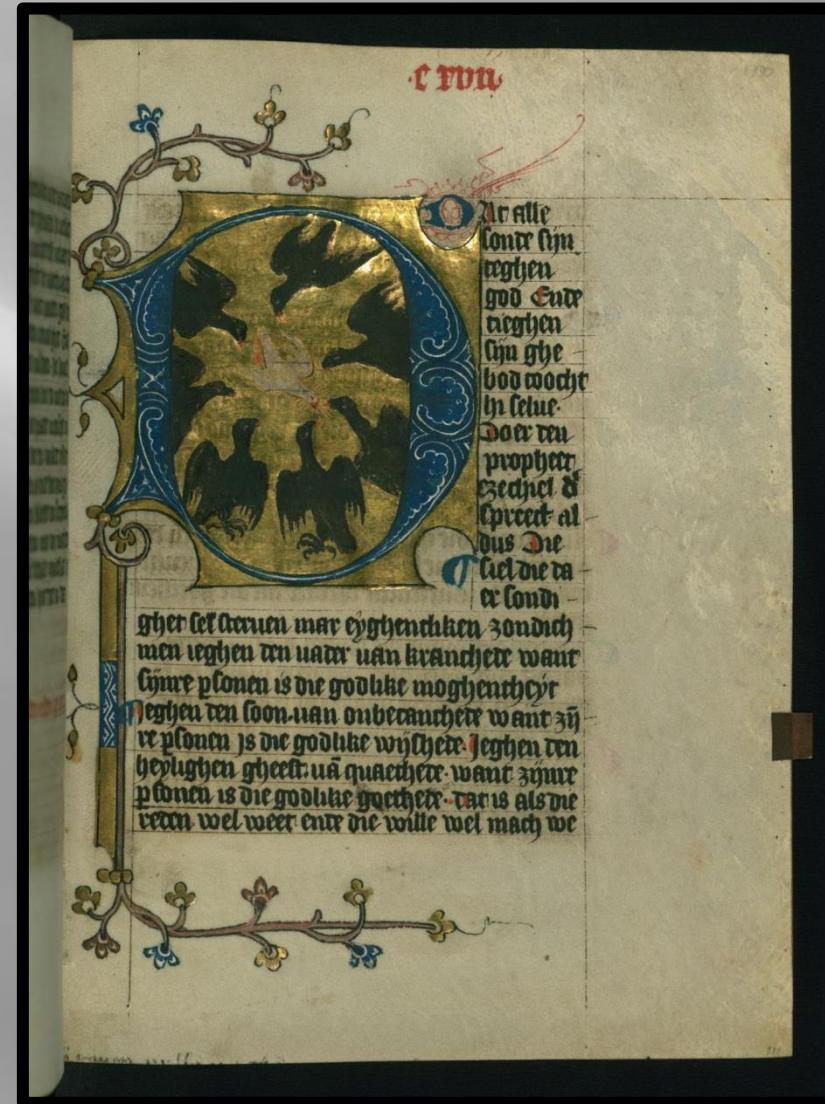 .c xvii.
Dat alle
sonde sijn
teghen
god Ende
tieghen
sijn ghe
bod toocht
hi selue.
Doer den
propheet
ezechiel d'
spreect al
dus Die
siel die da
er sondi
ghet sel steruen mar eyghentliken zondich
men ieghen den uader uan kranchede want
sijnre psonen is die godlike moghentheyt
Jeghen den soon. uan onbecanthede want zij
re psonen Js die godlike wijshede. Jeghen den
heylighen gheest. uā quaethede. want zijnre
psonen is die godlike goethede. dat is als die
reden wel weet ende die wille wel mach we